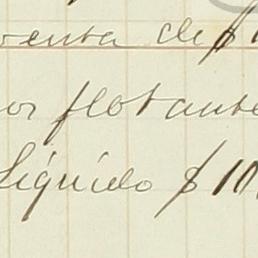 venta de $
por flotante
Líquido $ 10